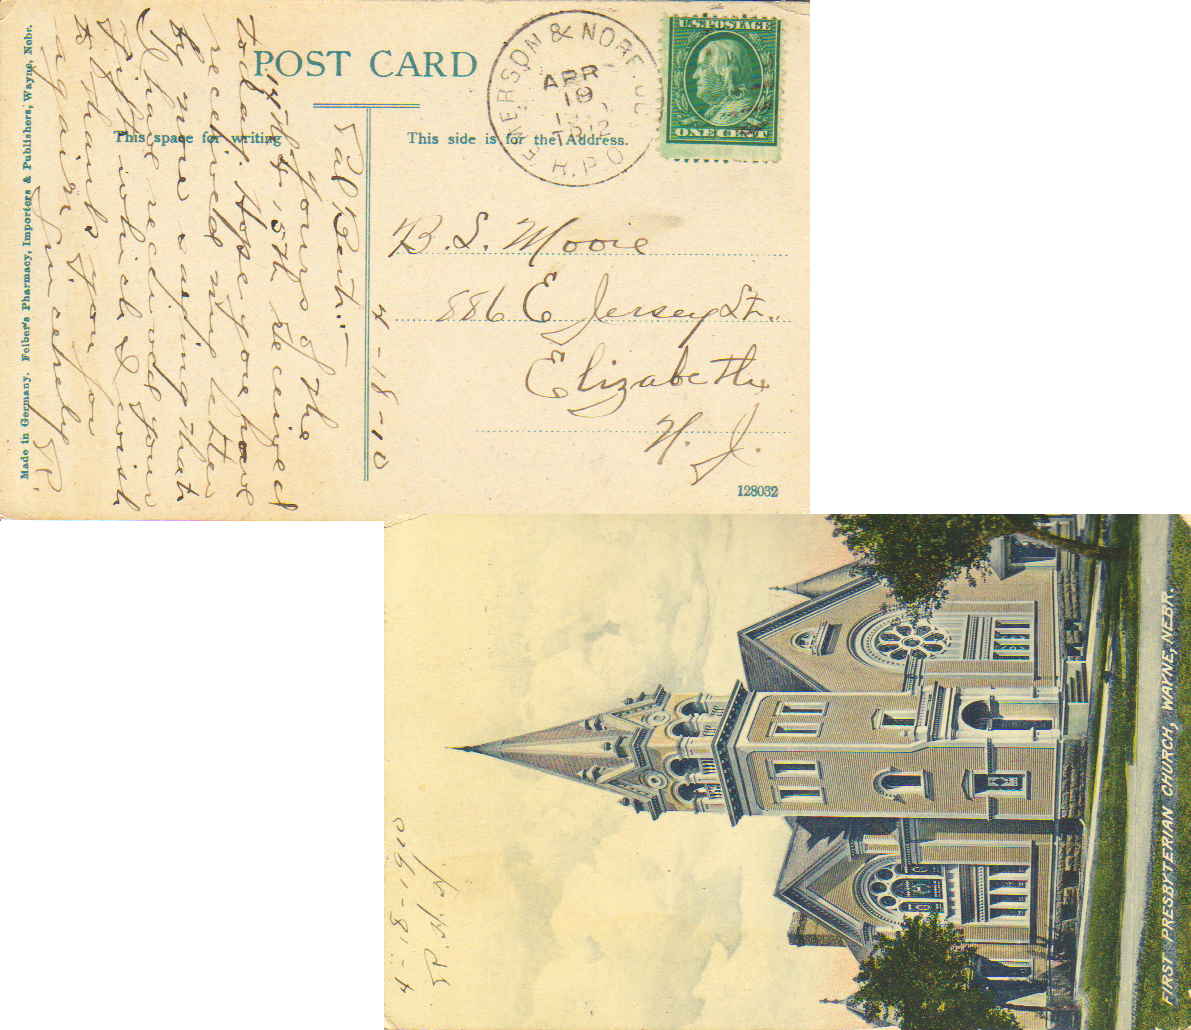 POST CARD
This space for writing
This side is for the Address.
U.S. POSTAGE
ONE CENT
R.P.O.
APR
19
4-18-10
Pal Bert:—
Yours of the
14th & 15th received
today. Hope you have
received my letter
by now saying that
I have received your
gift which I wish
to thank you for
again. Sincerely P.
B. S. Moore
886 E Jersey St.
Elizabeth
N. J.
128032
Made in Germany. Felber's Pharmacy, Importers & Publishers, Wayne, Nebr.
4-18-1910
FIRST PRESBYTERIAN CHURCH, WAYNE, NEBR.